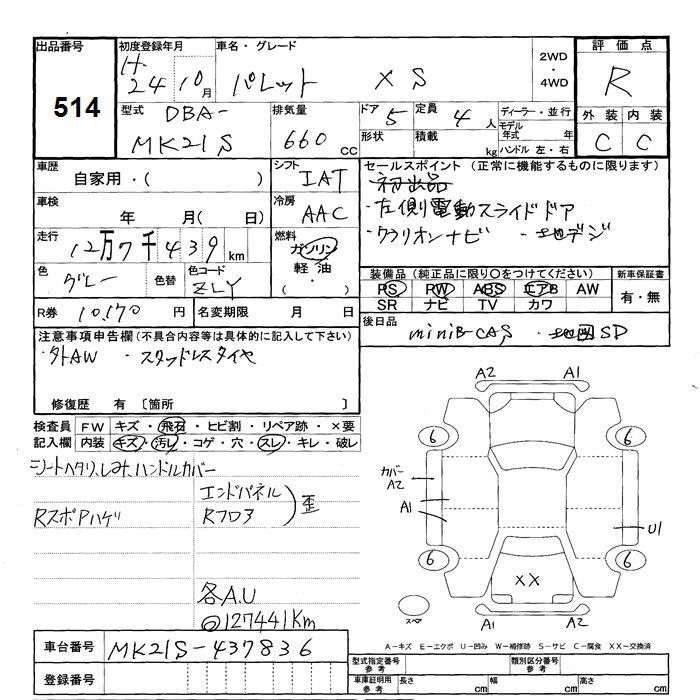 出品番号 初度登録年月 車名・グレード 2WD・4WD 評価点
514 H24 10月 パレット XS R
外装 内装
C C
型式 DBA-MK21S 排気量 660cc ドア 5 定員 4人 ディーラー・並行
形状 積載 kg モデル年式 年 ハンドル 左・右
車歴 自家用・( ) シフト IAT セールスポイント (正常に機能するものに限ります)
初出品
車検 年 月( 日) 冷房 AAC ・左側電動スライドドア
走行 12万7千439km 燃料 ガソリン 軽油 ・( ) ・クラリオンナビ ・地デジ
色 グレー 色替 色コード ZLY
装備品 (純正品に限り○をつけてください) 新車保証書
PS PW ABS エアB AW 有・無
SR ナビ TV カワ
R券 10,170円 名変期限 月 日 後日品 miniB-CAS ・地図SD
注意事項申告欄 (不具合内容等は具体的に記入して下さい)
・外AW ・スタッドレスタイヤ
修復歴 有 〔箇所 〕
検査員 FW キズ・飛石・ヒビ割・リペア跡・×要
記入欄 内装 キズ・汚レ・コゲ・穴・スレ・キレ・破レ
シートヘタリ、しみ、ハンドルカバー
エンドパネル
RスポPハゲ Rフロア 歪
各A.U
◎127441Km
A2 A1
6 6
カバーA2
A1 U1
6 6
XX
スペア A1 A2
A-キズ E-エクボ U-凹み W-補修跡 S-サビ C-腐食 XX-交換済
車台番号 MK21S-437836
登録番号
型式指定番号 参考 類別区分番号 参考
車庫証明用 参考 長さ cm 幅 cm 高さ cm